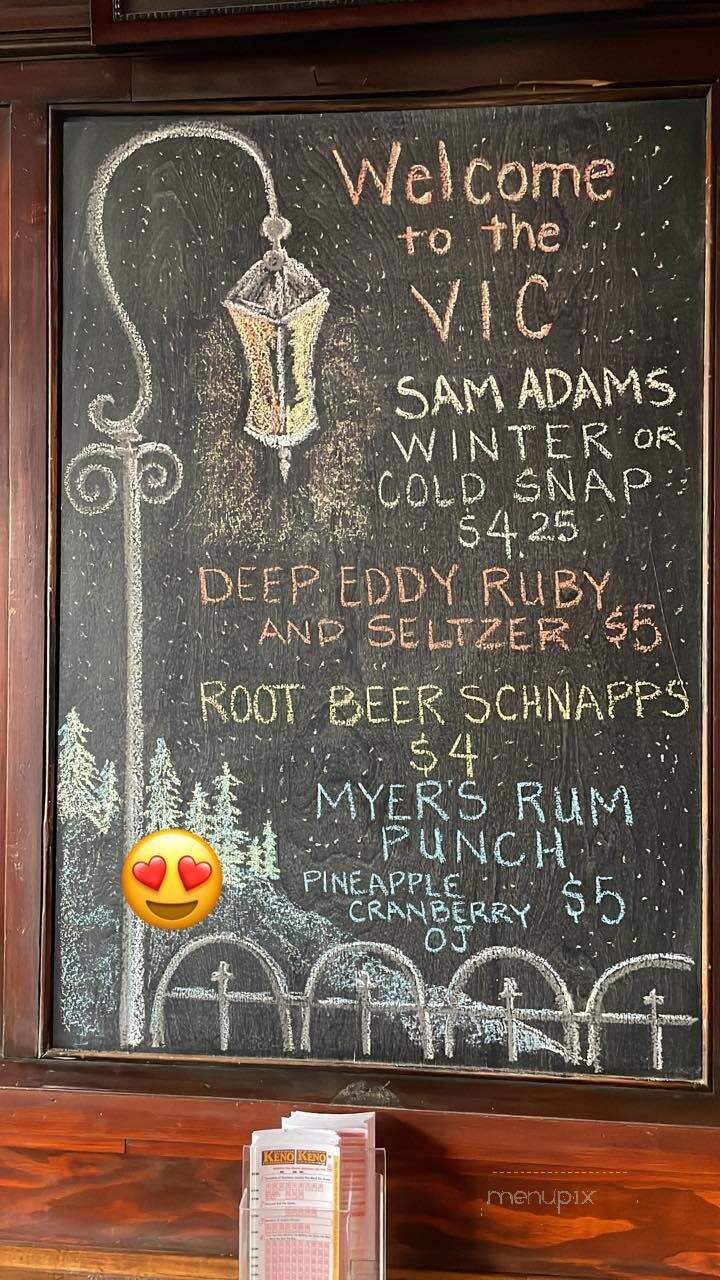 Welcome
to the
VIC
SAM ADAMS
WINTER OR
COLD SNAP
$4.25
DEEP EDDY RUBY
AND SELTZER $5
ROOT BEER SCHNAPPS
$4
MYER'S RUM
PUNCH
PINEAPPLE
CRANBERRY $5
OJ
KENO KENO
menupix